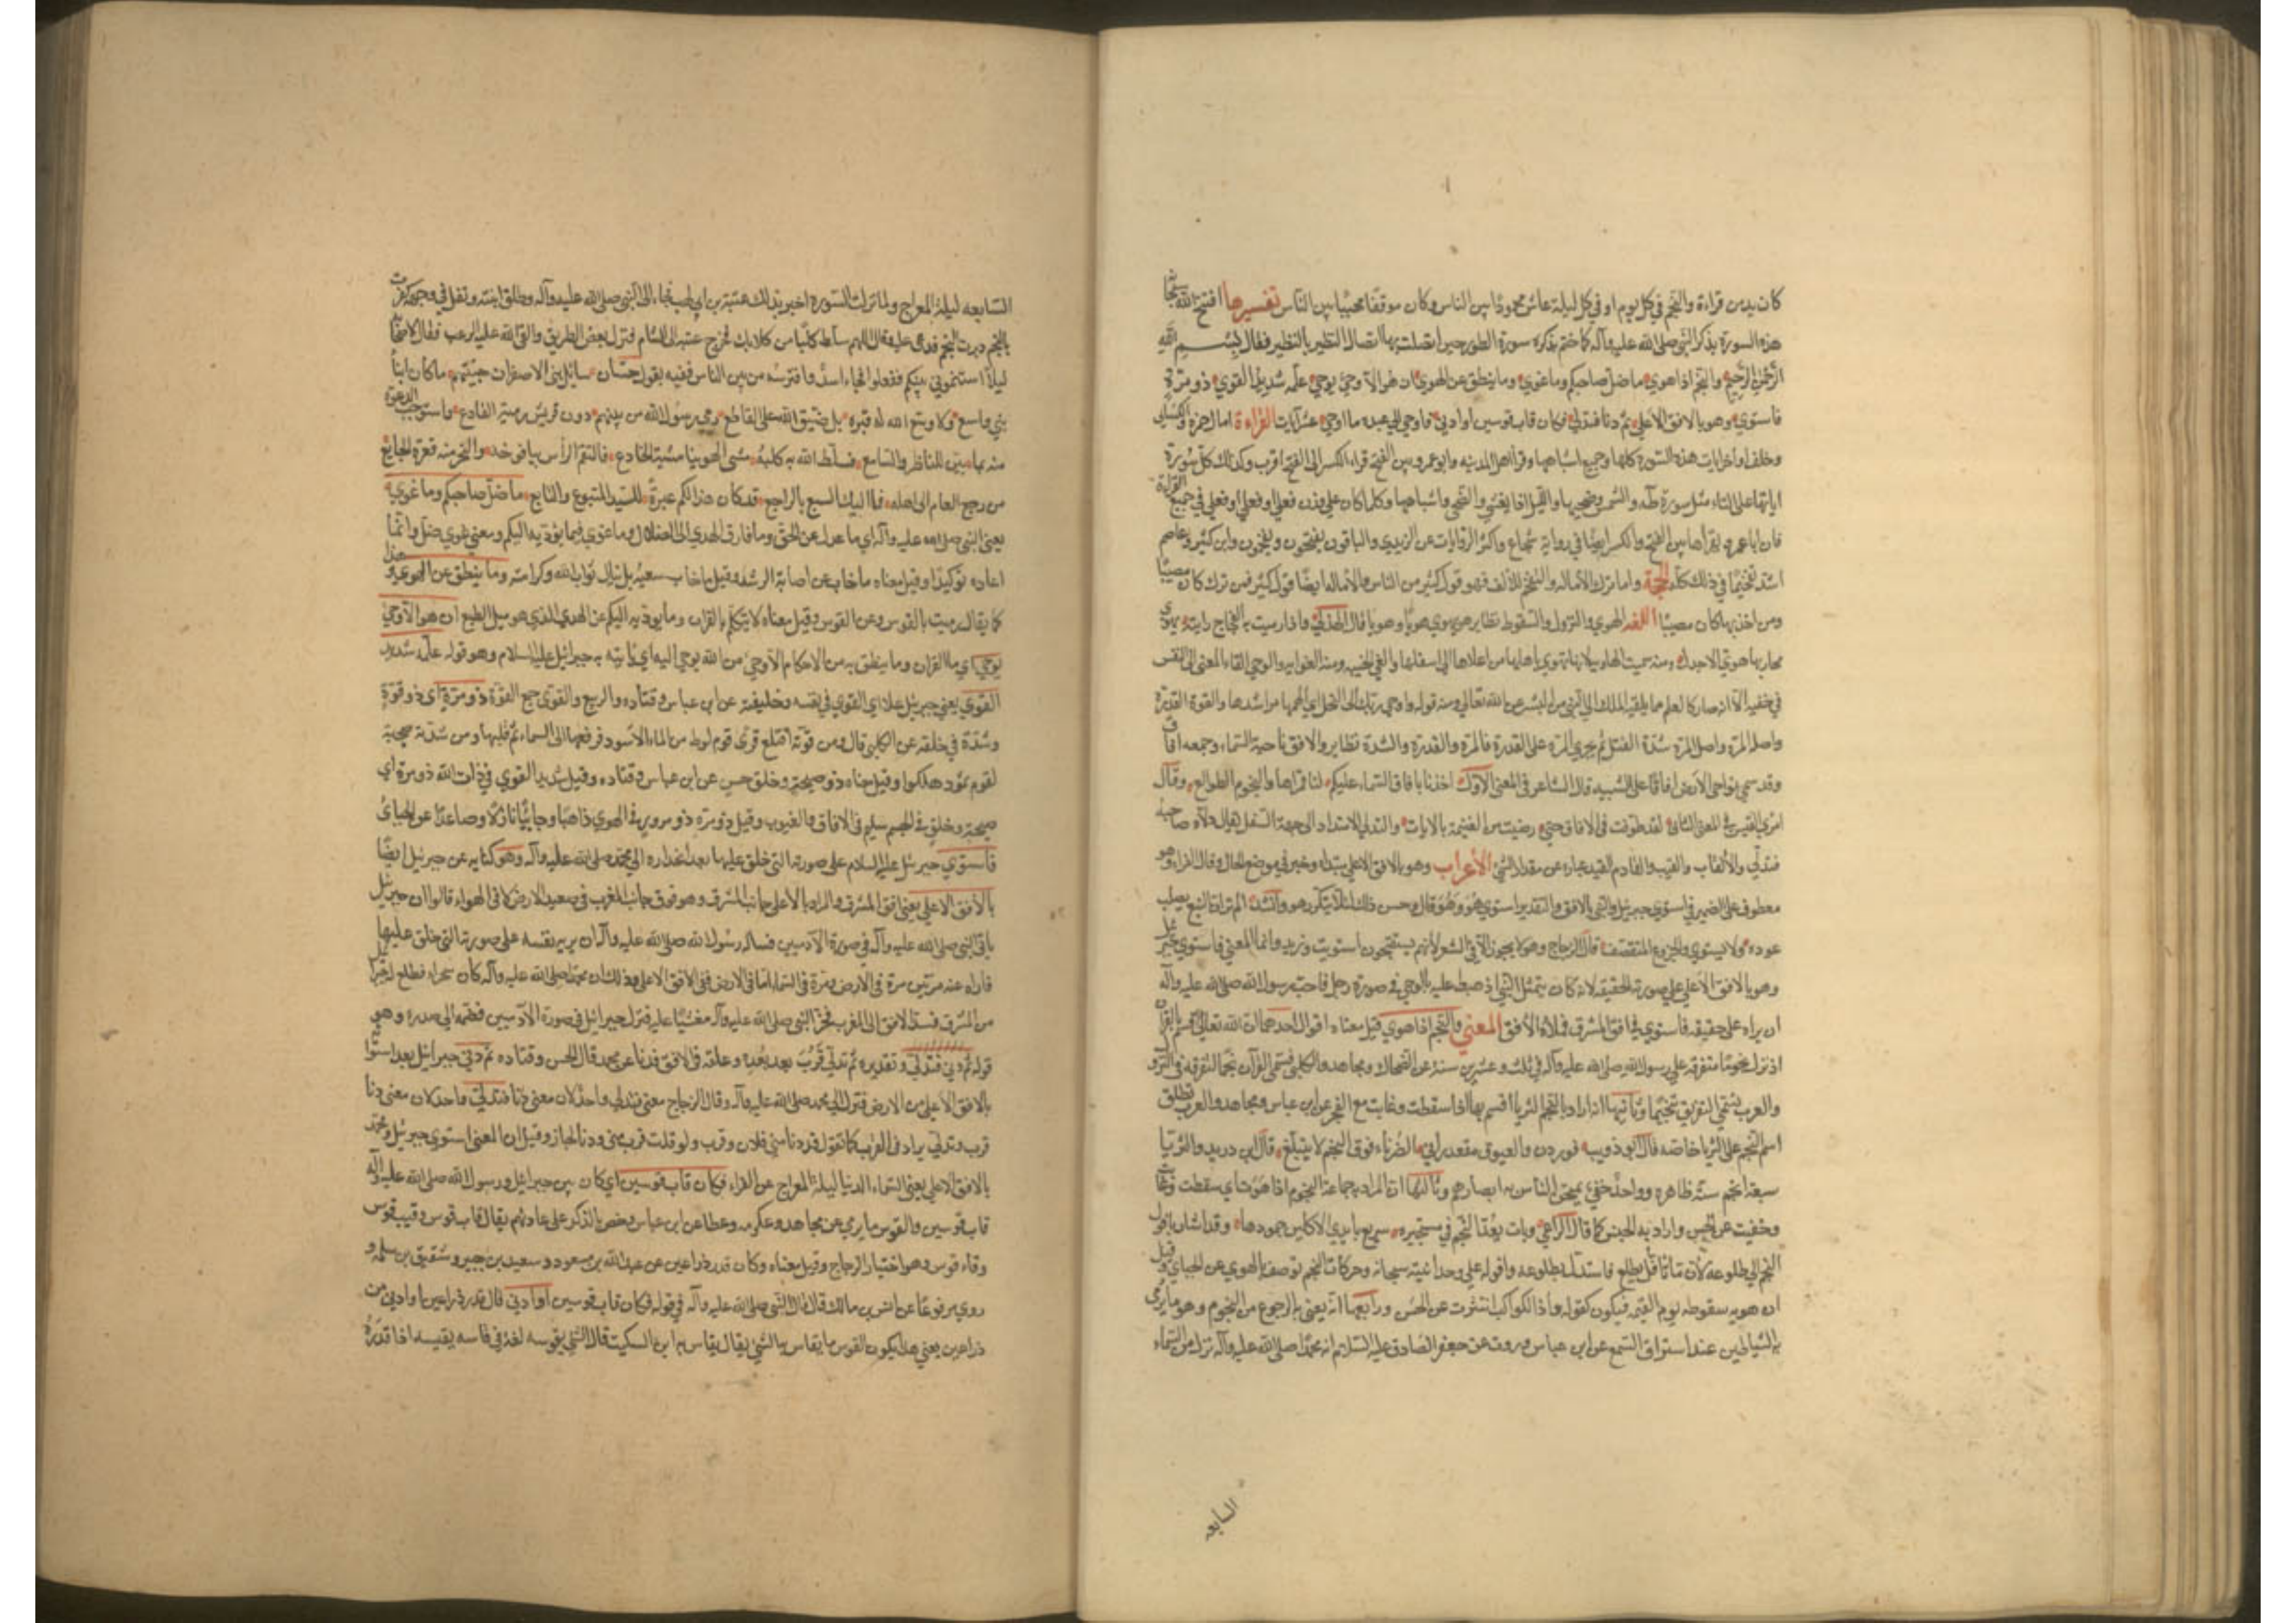 كان يدمن قراءة والنجم في كل يوم او في كل ليلة عاش محمودًا بين الناس وكان موقفًا محببًا بين الناس تفسيرها افتتح الله سبحانه
هذه السورة بذكر النبي صلى الله عليه وآله كما ختم بذكره سورة الطور حين اتصلت بها اتصال النظير بالنظير فقال بسم الله
الرحمن الرحيم والنجم اذا هوي ما ضل صاحبكم وما غوي وما ينطق عن الهوي ان هو الا وحي يوحي علمه شديد القوي ذو مرة
فاستوي وهو بالافق الاعلي ثم دنا فتدلي فكان قاب قوسين او ادني فاوحي الي عبده ما اوحي عشر آيات القراءة امال حمزة والكسائي
وخلف اواخر ايات هذه السورة كلها وجميع اشباهها وقرا اهل المدينه وابو عمرو بين الفتح قراءة الكسر الى الفتح اقرب وكذلك كل سورة
اياتها على الياء مثل سورة طه والشمس وضحيها والليل اذا يغشي والضحي واشباهها وكلما كان على وزن فعلي او فعلي او فعلي في جميع القراءة
فان ابا عمرو يقرأها بين الفتح والكسر ايضًا في رواية شجاع واكثر الروايات عن اليزيدي والباقون يفتحون ويفخمون وابن كثير وعاصم
اشد تفخيمًا في ذلك كله الحجة واما ترك الامالة والتفخيم للالف فهو قول كثير من الناس والامالة ايضًا قول كثير فمن ترك كان مصيبًا
ومن اخذ بها كان مصيبًا اللغه الهوي والنزول والسقوط نظاير هوي يهوي هويًا وهويا قال الهذلي واذا رميت به الفجاج رايته يهوي
محاربها هوي الاجدل ومنه سميت الهاوية لانها تهوي باهلها من اعلاها الى اسفلها والغي الخيبه ومنه الغوايه والوحي القاء المعنى الى النفس
في خفيه الا انه صار كالعلم فيما يلقيه الملك الى النبي من البشر عن الله تعالى ومنه قوله واوحي ربك الى النحل اي الهمها مراشدها والقوة القدرة
واصل المرة شدة الفتل ثم يجري المرة على القدرة فالمرة والقدرة والشدة نظاير والافق ناحية السماء وجمعه افاق
وقد سمي نواحى الارض افاقًا على التشبيه قال الشاعر في المعنى الاول اخذنا بافاق السماء عليكم لنا قمراها والنجوم الطوالع وقال
امرؤ القيس في المعنى الثاني لقد طوفت في الافاق حتي رضيت من الغنيمة بالايات والتدلي الامتداد الى جهة السفل يقال دلاه صاحبه
فتدلي والقاب والقيب والقاد والقيد عبارة عن مقدار الشيء الأعراب وهو بالافق الاعلي مبتداء وخبر في موضع الحال وقال الفراء وهو
معطوف على الضمير في استوي اي جبرئيل والنبي بالافق والتقدير استوي هو وهو قال وحسن ذلك لئلا يتكرر هو وانشد الم تر ان النبع يصلب
عوده ولا يستوي والخروع المتقصف قال الزجاج وهو لا يجوز الا في الشعر لأنهم يستقبحون استويت وزيد وانما المعنى فاستوي جبرئيل
وهو بالافق الاعلي على صورته الحقيقه لانه كان يتمثل للنبي اذ هبط عليه بالوحي في صورة رجل فاحب رسول الله صلى الله عليه وآله
ان يراه على حقيقته فاستوي في افق المشرق فملأ الأفق المعني والنجم اذا هوي قيل معناه اقوال احدها ان الله تعالى اقسم بالقرآن
اذ نزل نجومًا متفرقه على رسول الله صلى الله عليه وآله في ثلث وعشرين سنة عن الضحاك ومجاهد والكلبي فسمى القرآن نجمًا لتفرقه في النزول
والعرب تسمي التفريق تنجيمًا وثانيها انه اراد بالنجم الثريا اقسم بها اذا سقطت وغابت مع الفجر عن ابن عباس ومجاهد والعرب تطلق
اسم النجم على الثريا خاصه قال ابو ذويب فوردن والعيوق مقعد رابي الضرباء فوق النجم لا يتتلع قال ابن دريد والثريا
سبعة انجم ستة ظاهرة وواحد خفي يمتحن الناس به ابصارهم وثالثها ان المراد به جماعة النجوم اذا هوت اي سقطت وغابت
وخفيت عن الحس واراد به الجنس كما قال الراعي وبات يعد النجم في مستحيرة سريع بايدي الاكلين جمودها وقد اشار بافول
النجم الى طلوعه لان ما ياقل يطلع فاستدل بطلوعه وافوله على وحدانية سبحانه وحركات النجم توصف بالهوي عن الجبائي وقيل
ان هويه سقوطه يوم القيمه فيكون كقوله واذا الكواكب انتثرت عن الحسن ورابعها انه يعنى به الرجوم من النجوم وهو ما يرمى
به الشياطين عند استراق السمع عن ابن عباس وروت عن جعفر الصادق عليه السلام انه محمدًا صلى الله عليه وآله نزل من السماء
السابعه
السابعه ليلة المعراج ولما نزلت السورة اخبر بذلك عتبة بن ابي لهب فجاء الى النبي صلى الله عليه وآله وطلق ابنته وتفل في وجهه وقال كفرت
بالنجم وبرب النجم فدعى عليه وقال اللهم سلط كلبًا من كلابك فخرج عتبة الى الشام فنزل بعض الطريق والقى الله عليه الرعب فقال لاصحابه
ليلًا استنموني بينكم ففعلوا فجاء اسد وافترسه من بين الناس ففيه يقول حسان سائل بنى الاصفر ان جيتهم ما كان ابناء
بني واسع لا وسع الله له قبره بل ضيق الله على القاطع رمى رسول الله من بينهم دون قريش رمية القادع واستوجب الدعوة
منه بما بين للناظر والسامع فسلط الله به كلبه مشى الهوينا مشية الخادع فالتقم الرأس بيافوخه والنحر منه فغرة الجايع
من يرجع العام الى اهله فما اكيل السبع بالراجع قد كان هذا لكم عبرة للسيد المتبوع والتابع ما ضل صاحبكم وما غوي
يعني النبي صلى الله عليه وآله اي ما عدل عن الحق وما فارق الهدي الى الضلال وما غوي فيما يؤديه اليكم ومعنى غوي ضل وانما
اعاده توكيدًا وقيل معناه ما خاب عن اصابة الرشد وقيل ما خاب سعيه بل ينال ثواب الله وكرامته وما ينطق عن الهوي وهذا
كما يقال رميت بالقوس وعن القوس وقيل معناه لا يتكلم بالقران وما يوديه اليكم عن الهوى الذي هو ميل الطبع ان هو الا وحي
يوحي اي ما القران وما ينطق به من الاحكام الا وحي من الله يوحي اليه اي يأتيه به جبرائيل عليه السلام وهو قوله علمه شديد
القوي يعني جبرئيل علا اي القوي في نفسه وخليقته عن ابن عباس وقتاده والربيع والقوى جمع القوة ذو مرة اى ذو قوة
وشدة في خلقه عن الكلبي قال ومن قوته اقتلع قرى قوم لوط من الماء الاسود فرفعها الى السماء ثم قلبها ومن شدته صيحته
لقوم ثمود هلكوا وقيل معناه ذو صحة وخلق حسن عن ابن عباس وقتاده وقيل شديد القوي في ذات الله ذو مرة اي
صحة وخلق في الجسم سليم في الافاق والعيوب وقيل ذو مرة ذو مرور في الهوي ذاهبًا وجائيًا نازلًا وصاعدًا عن الجبائي
فاستوي جبرئيل عليه السلام على صورته التي خلق عليها بعد انحداره الى محمد صلى الله عليه وآله وهو كنايه عن جبرئيل ايضًا
بالأفق الاعلي يعنى افق المشرق والمراد بالأعلى جانب المشرق وهو فوق جانب المغرب في صعيد الارض لا في الهواء قالوا ان جبرئيل
ياتى النبي صلى الله عليه وآله في صورة الآدميين فساله رسول الله صلى الله عليه وآله ان يريه نفسه على صورته التي خلق عليها
فاراه نفسه مرتين مرة في الأرض ومرة في السماء اما في الارض ففي الافق الاعلي وذلك ان محمدًا صلى الله عليه وآله كان بحراء فطلع له جبرائيل
من المشرق فسد الافق الى المغرب فخر النبي صلى الله عليه وآله مغشيًا عليه فنزل جبرائيل في صورة الآدميين فضمه الى صدره وهو
قوله ثم دني فتدلي وتقديره ثم تدلي قرب بعد بعده وعلقه في الافق فدنا عن محمد قال الحسن وقتاده ثم دني جبرائيل بعد استوائه
بالافق الاعلي من الارض فنزل الى محمد صلى الله عليه وآله وقال الزجاج معنى دنا فتدلي واحد لان معنى دنا
قرب وتدلي زاد في القرب كما تقول قد دنا مني فلان وقرب ولو قلت قرب مني ودنا لجاز وقيل ان المعنى استوي جبرئيل ومحمد
بالافق الاعلي يعنى السماء الدنيا ليلة المعراج عن الفراء فكان قاب قوسين اي كان بين جبرائيل ورسول الله صلى الله عليه وآله
قاب قوسين والقوس ما يرمي عن مجاهد وعكرمه وعطا عن ابن عباس وخص بالذكر على عادتهم يقال قاب قوس وقيب قوس
وقاد قوس وهو اختيار الزجاج وقيل معناه وكان قدر ذراعين عن عبد الله بن مسعود وسعيد بن جبير وشقيق بن سلمه و
روي مرفوعًا عن انس بن مالك قال قال النبي صلى الله عليه وآله في قوله فكان قاب قوسين او ادني قال قدر ذراعين او ادني من
ذراعين يعني هذا يكون القوس ما يقاس به الشيء يقال يقاس به ابن السكيت قاس الشي يقوسه لغة في قاسه يقيسه اذا قدره